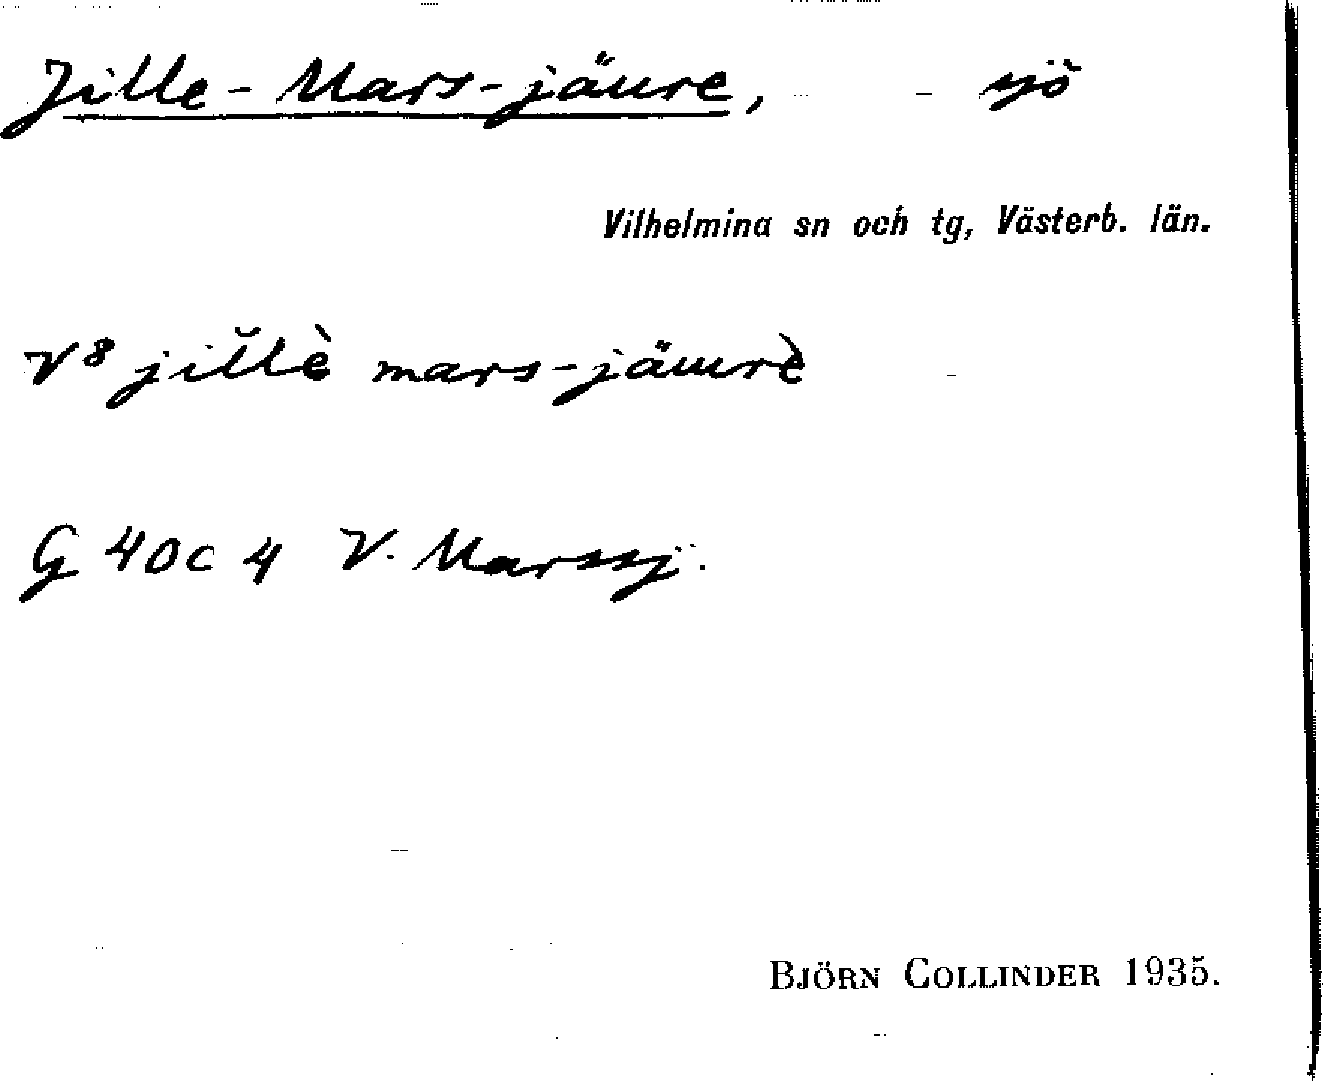 Jille-Mars-jäure, sjö
Vilhelmina sn och tg, Västerb. län.
V8 jil̆lè mars-jäurè
G 40c 4 V. Marssj.
BJÖRN COLLINDER 1935.